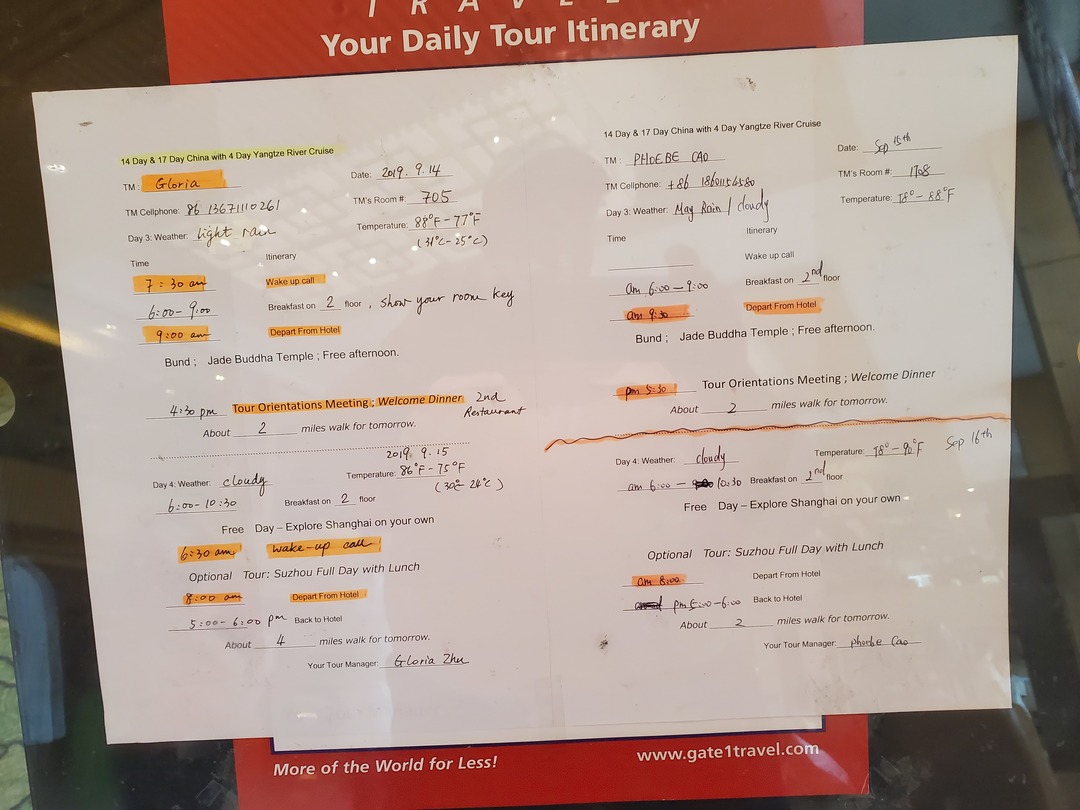 TRAVEL
Your Daily Tour Itinerary
14 Day & 17 Day China with 4 Day Yangtze River Cruise
TM: Gloria Date: 2019. 9. 14
TM Cellphone: 86 13671110261 TM's Room #: 705
Day 3: Weather: light rain Temperature: 88°F-77°F
(31°C-25°C)
Time Itinerary
7:30 am Wake up call
6:00-9:00 Breakfast on 2 floor, show your room key
9:00 am Depart From Hotel
Bund ; Jade Buddha Temple ; Free afternoon.
4:30 pm Tour Orientations Meeting ; Welcome Dinner 2nd
Restaurant
About 2 miles walk for tomorrow.
2019. 9. 15
Day 4: Weather: cloudy Temperature: 86°F-75°F
(30°C 24°C)
6:00-10:30 Breakfast on 2 floor
Free Day – Explore Shanghai on your own
6:30 am wake-up call
Optional Tour: Suzhou Full Day with Lunch
8:00 am Depart From Hotel
5:00-6:00 pm Back to Hotel
About 4 miles walk for tomorrow.
Your Tour Manager: Gloria Zhu
14 Day & 17 Day China with 4 Day Yangtze River Cruise
TM: PHOEBE CAO Date: Sep 15th
TM Cellphone: +86 TM's Room #: 1708
Day 3: Weather: May Rain / cloudy Temperature: 78°-88°F
Time Itinerary
Wake up call
am 6:00-9:00 Breakfast on 2nd floor
am 9:30 Depart From Hotel
Bund ; Jade Buddha Temple ; Free afternoon.
pm 5:30 Tour Orientations Meeting ; Welcome Dinner
About 2 miles walk for tomorrow.
Day 4: Weather: cloudy Temperature: 78°-90°F Sep 16th
am 6:00- 10:30 Breakfast on 2nd floor
Free Day – Explore Shanghai on your own
Optional Tour: Suzhou Full Day with Lunch
am 8:00 Depart From Hotel
pm 5:00-6:00 Back to Hotel
About 2 miles walk for tomorrow.
Your Tour Manager: Phoebe Cao
More of the World for Less! www.gate1travel.com